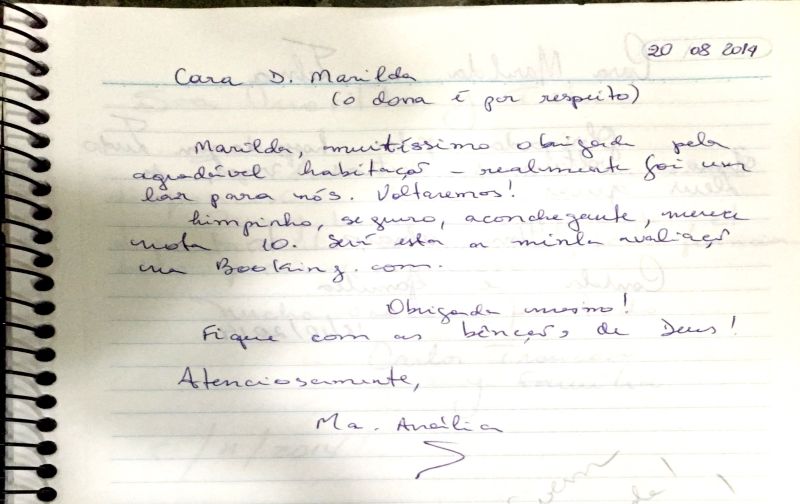 20 08 2014
Cara D. Marilda
(o dona é por respeito)
Marilda, muitíssimo obrigada pela
agradável habitação - realmente foi um
lar para nós. Voltaremos!
Limpinho, seguro, aconchegante, merece
nota 10. Será esta a minha avaliação
na Booking.com.
Obrigada mesmo!
Fique com as bênçãos de Deus!
Atenciosamente,
Ma. Anália